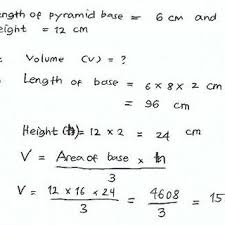 ength of pyramid base = 6 cm and
eight = 12 cm
= Volume (V) = ?
Length of base = 6 x 8 x 2 cm
= 96 cm
Height (h) = 12 x 2 = 24 cm
V = Area of base x h
3
V = 12 x 16 x 24 = 4608 = 15
3 3